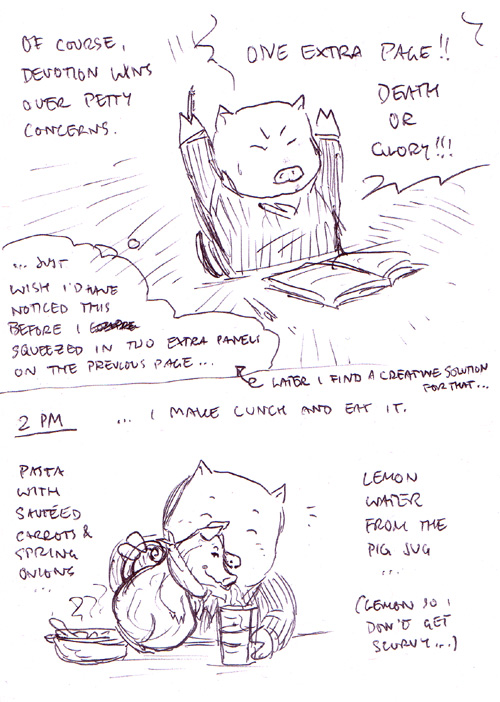 OF COURSE,
DEVOTION WINS
OVER PETTY
CONCERNS.
ONE EXTRA PAGE!!
DEATH
OR
GLORY!!!
... JUST
WISH I'D HAVE
NOTICED THIS
BEFORE I
SQUEEZED IN TWO EXTRA PANELS
ON THE PREVIOUS PAGE...
LATER I FIND A CREATIVE SOLUTION
FOR THAT...
2 PM
... I MAKE LUNCH AND EAT IT.
PASTA
WITH
SAUTÉED
CARROTS &
SPRING
ONIONS
...
LEMON
WATER
FROM THE
PIG JUG
...
(LEMON SO I
DON'T GET
SCURVY...)